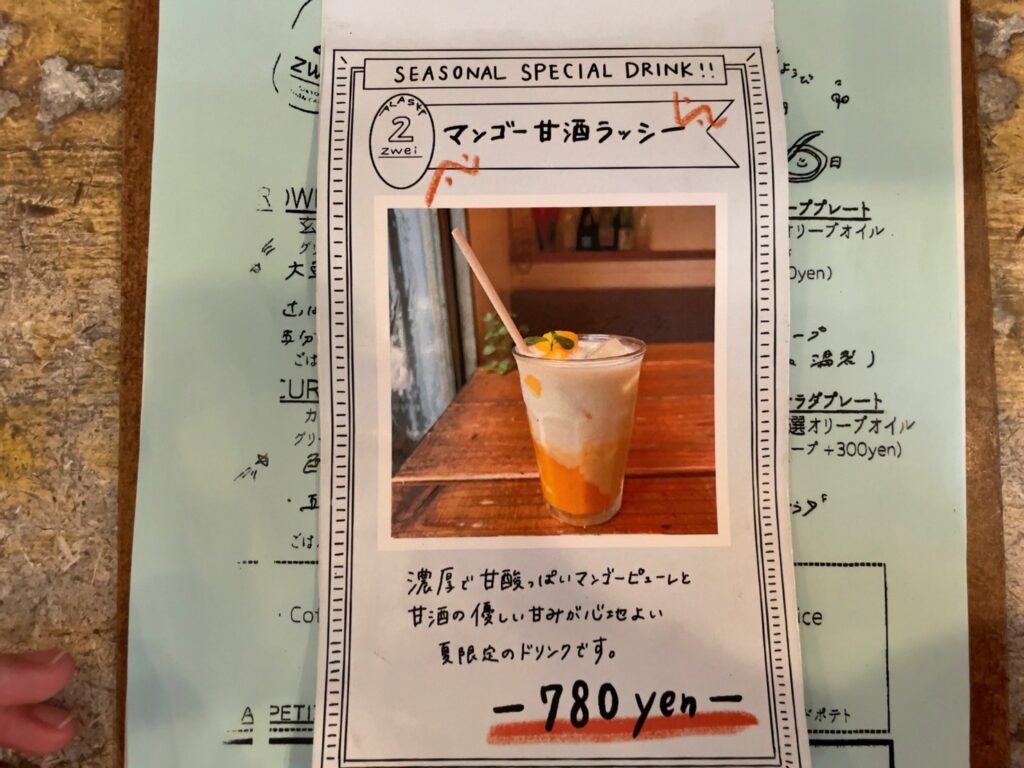 SEASONAL SPECIAL DRINK!!
2
zwei
マンゴー甘酒ラッシー
濃厚で甘酸っぱいマンゴーピューレと
甘酒の優しい甘みが心地よい
夏限定のドリンクです。
- 780 yen -
日
ププレート
オリーブオイル
0yen)
ープ
ラダプレート
選オリーブオイル
ープ +300yen)
大豆
五分
ごは
CUR
カ
グリー
色
ごは
・Cof
ice
APPETI
ドポテト